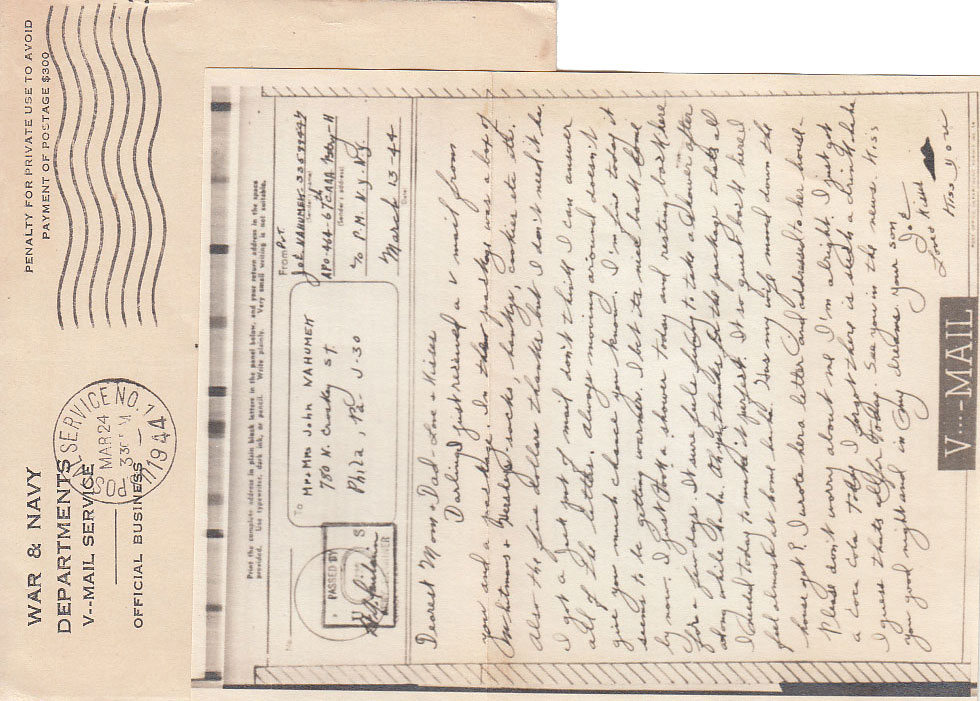 WAR & NAVY
DEPARTMENTS
V--MAIL SERVICE
OFFICIAL BUSINESS
PENALTY FOR PRIVATE USE TO AVOID
PAYMENT OF POSTAGE $300
SERVICE NO. 1
MAR 24
1944
Print the complete address in plain black letters in the panel below, and your return address in the space
provided. Use typewriter, dark ink, or pencil. Write plainly. Very small writing is not suitable.
No.
PASSED BY
U S
To
MR & MRS John NAHUMEK
780 N. Croskey ST
Phila, Pa - J-30
From Pvt.
Joe NAHUMEK - 33579447
(Sender's name)
APO-464-67th CAAA Btry-H
(Sender's address)
c/o P.M. N.Y. N.Y.
March 13-44
Date
Dearest Mom & Dad - Love & Kisses
Darling I just received a V mail from
you and a package. In the package was a box of
Whitmans & Hersheys, socks, hankys, cookies ete etc.
Also the five dollars thanks but I don't need it he.
I got a just got mail don't think I can answer
all of the letters. Always moving around doesn't
give you much chance you know. I'm fine today it
seems to be getting warmer. I bet its nice back home
by now. I just took a shower today and resting back here
for a few days. It sure feels funny to take a shower after
a long while Ha ha. Oh yes thanks for the package thats all
I needed today to make it perfect. It so quiet back here I
feel almost at home haha. Has my wife moved down the
house yet? I wrote her a letter and addressed to her house.
Please don't worry about me I'm alright. I just got
a coca cola today I forgot there is such a drink haha
I guess thats all for today. See you in the news. Kiss
you good night and in my dreams Your son
Joe
Love & Kisses
Miss You
V···-MAIL